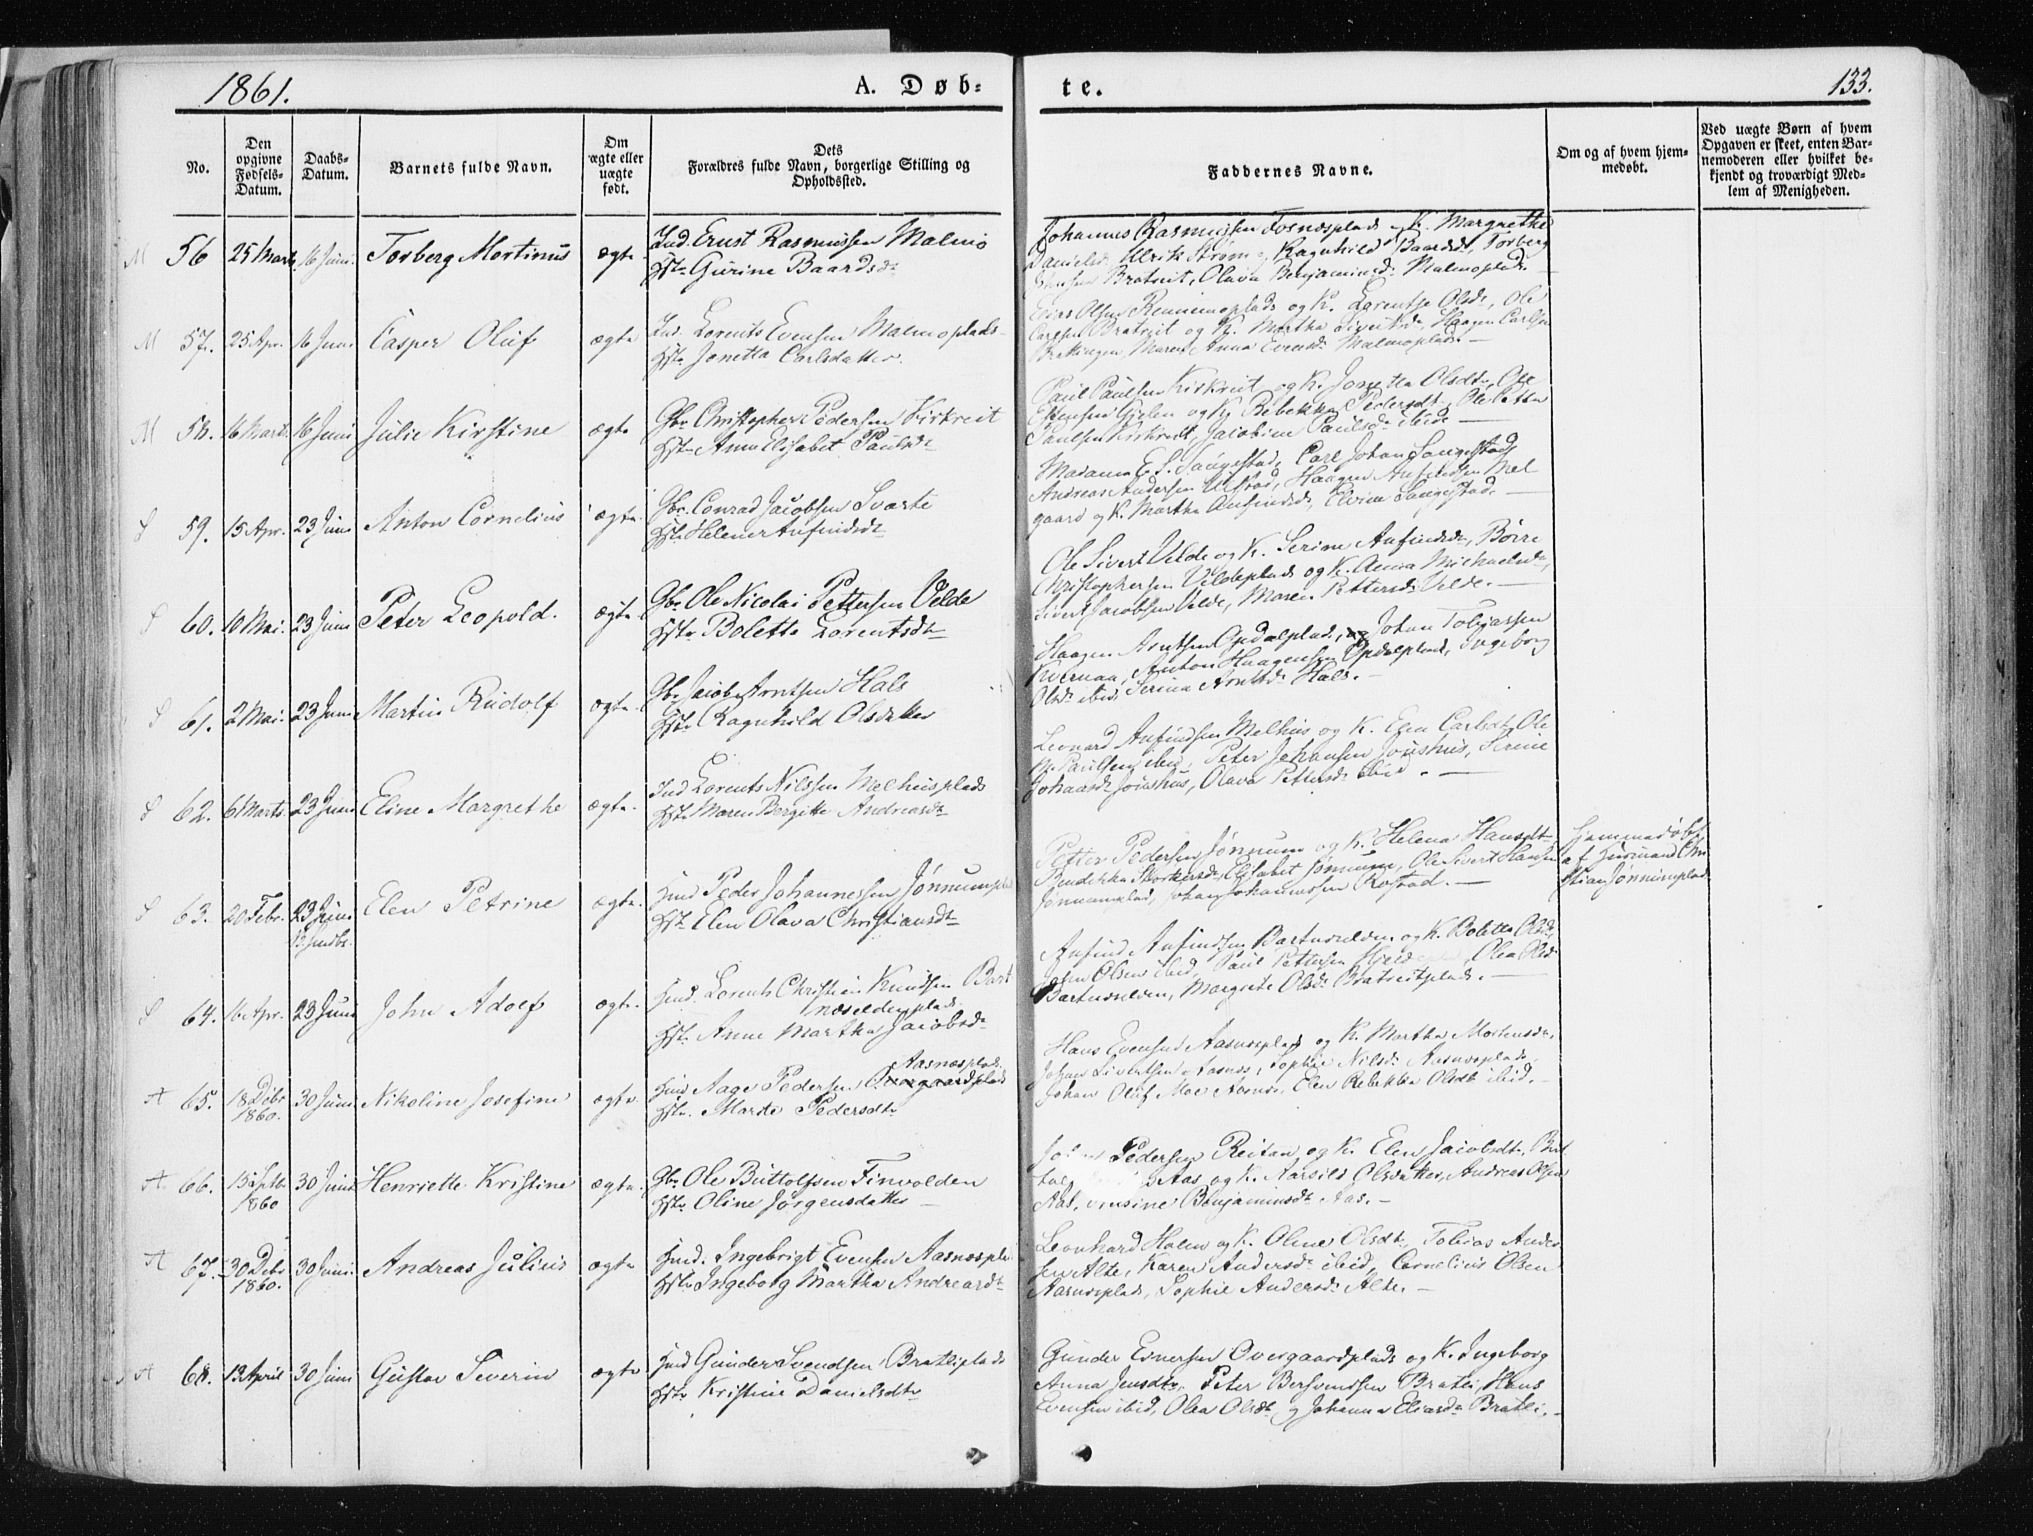 1861.
A. Døb-
te.
133.
No.
Den opgivne Fødsels-Datum.
Daabs-Datum.
Barnets fulde Navn.
Om ægte eller uægte født.
Dets Forældres fulde Navn, borgerlige Stilling og Opholdssted.
Faddernes Navne.
Om og af hvem hjem-medøbt.
Ved uægte Børn af hvem Opgaven er skeet, enten Bar-nemoderen eller hvilket be-kjendt og troværdigt Med-lem af Menigheden.
M 56 25 Marts 16 Juni Torberg Martinus ægte Ind. Ernst Rasmussen Malmo
Hst. Gurine Baardsdt
Johannes Rasmussen Fosnesplads og K. Margrethe
Danielsd. Ulrik Strøm, Ragnhild Baardsd. Torberg
Bratreit, Olava Benjaminsd. Malmoplads
M 57. 25 Apr. 16 Juni Casper Oluf ægte Ind. Lorents Evensen Malmoplads
Hst. Jonetta Carlsdatter.
Elias Olsen Remmemoplads og K. Lorentse Olsdt, Ole
Carlsen Bratreit og K. Martha Sivertsd. Haagen Carlsen
Brattingen, Maren Anna Evensd. Malmoplads. —
M 58. 16 Marts. 16 Juni Julie Kirstine ægte Gbr. Christopher Pedersen Kirkreit
Hst. Anna Elisabet Paulsdt
Paul Paulsen Kirkreit og K. Jonetta Olsdt., Ole
Ellensen Gjelen og K. Rebekka Pedersdt, Ole Petter
Paulsen Kirkreit, Jacobine Paulsd. ibid —
S 59. 15 Apr. 23 Juni Anton Cornelius ægte. Gbr. Conrad Jacobsen Svarte
Hst. Helene Anfindsdt
Madame E. S. Saugestad, Carl Johan Saugestad,
Andreas Andersen Ulstad, Haagen Anfindsen Mel
gaard og K. Martha Anfindsdt, Elvine Saugestad. —
S 60. 10 Mai. 23 Juni Peter Leopold. ægte. Gbr. Ole Nicolai Pettersen Velde
Hst. Boletta Lorentsdt
Ole Sivert Velde og K. Serine Anfindsdt, Børre
Christophersen Veldeplads og K. Anna Michaelsdt,
Sivert Jacobsen Velde, Maren Pettersd. Velde. —
S 61. 2 Mai. 23 Juni Martin Rudolf ægte. Gbr. Jacob Arntsen Hals
Hst. Ragnhild Olsdatter
Haagen Arntsen Opdalplads, og Johan Tobiassen
Kvernaa, Anton Haagensen Opdalplads, Ingeborg
Olsd. ibid, Serina Arntsd. Hals. —
S 62. 6 Marts. 23 Juni Eline Margrethe ægte. Ind Lorents Nilssen Melhusplads
Hst. Maren Bergitte Andreasdt
Leonard Anfindsen Melhus og K. Elen Carlsdt, Ole
M. Paulsen ibid, Peter Johansen Joushus, Serine
Johansd. Joushus, Olava Pettersd. ibid. —
S 63. 20 Febr. 23 Juni Elen Petrine ægte. Hmd Peder Johannessen Jønnumpl.
Hst. Elen Olava Christiansdt
Petter Pedersen Jønnum og K. Helena Hansdt,
Bendikka Elisabet Jønnum, Ole Sivert Hansen
Jønnumplad, Johan Johannessen Rostad. —
Hjemmedøbt
af Husmand Chri
stian Jønnumplad.
S 64. 16 Apr. 23 Juni John Adolf ægte. Hmd. Lorents Christian Knudsen Bart
næseldenplads
Hst. Anne Martha Jacobsdt
Anfind Anfindsen Bartneselden og K. Boletta Olsd.,
Olsen ibid, Paul Pettersen, Olea Olsd.
Bartneselden, Margrete Olsd. Bratreitplads. —
A 65. 18 Debr 1860. 30 Juni Nikoline Josefine ægte Aasnesplads.
Hmd Aage Pedersen Overgaardplads
Hst. Marte Pedersdt
Hans Evensen Aasnesplads og K. Martha Mortensdt,
Johan Sivertsen Aasnes, Sophie Nilsd. Aasnesplads,
Johan Oluf Moe Aasnes, Elen Rebekka Olsdt ibid. —
A 66. 15 Septbr 1860 30 Juni Henriette Kristine ægte. Gbr. Ole Buttolfsen Finvolden
Hst. Oline Jørgensdatter —
Pedersen Reitan og K. Elen Jacobsdt, But
Aas og K. Aarsild Olsdatter, Andreas Olsen
Aas, Benjaminsdt Aas. —
A 67. 30 Debr 1860. 30 Juni. Andreas Julius ægte Hmd. Ingebrigt Evensen Aasnespla
Hst. Ingeborg Martha Andreasdt
Leonhard Holm og K. Oline Olsdt, Tobias Ander
sen Alte, Karen Andersd. ibid, Cornelius Olsen
Aasnesplads, Sophie Andersd. Alte. —
A 68. 13 April 30 Juni Gustav Severin ægte Hmd Gunder Svendsen Bratliplads
Hst. Kristine Danielsdt
Gunder Einersen Overgaardplads og K. Ingeborg
Anna Jensdt, Peter Bersvendsen Bratli, Hans
Evensen ibid, Olea Olsdt og Johanna Eliasd. Bratli. —